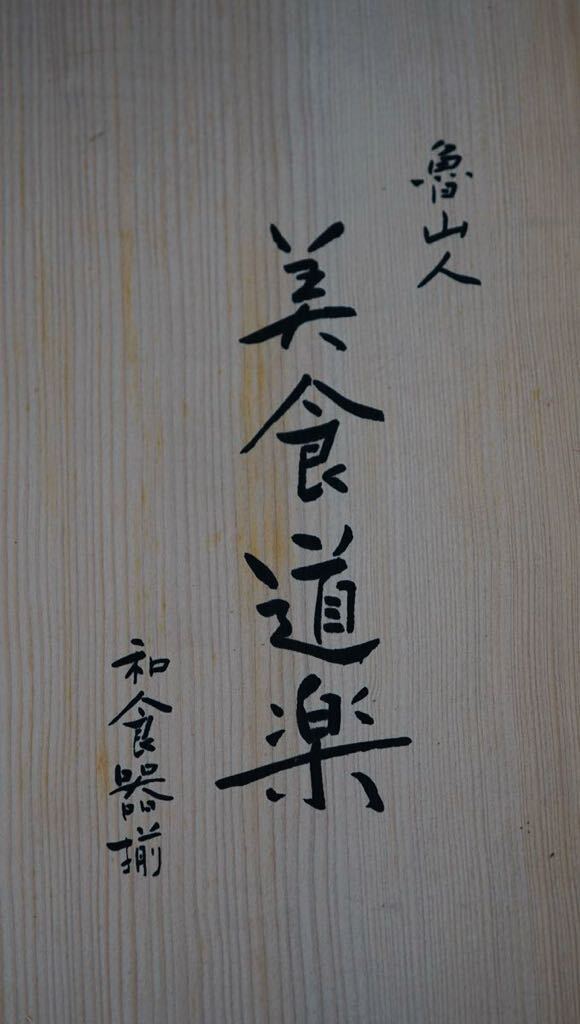 魯山人
美食道楽
和食器揃